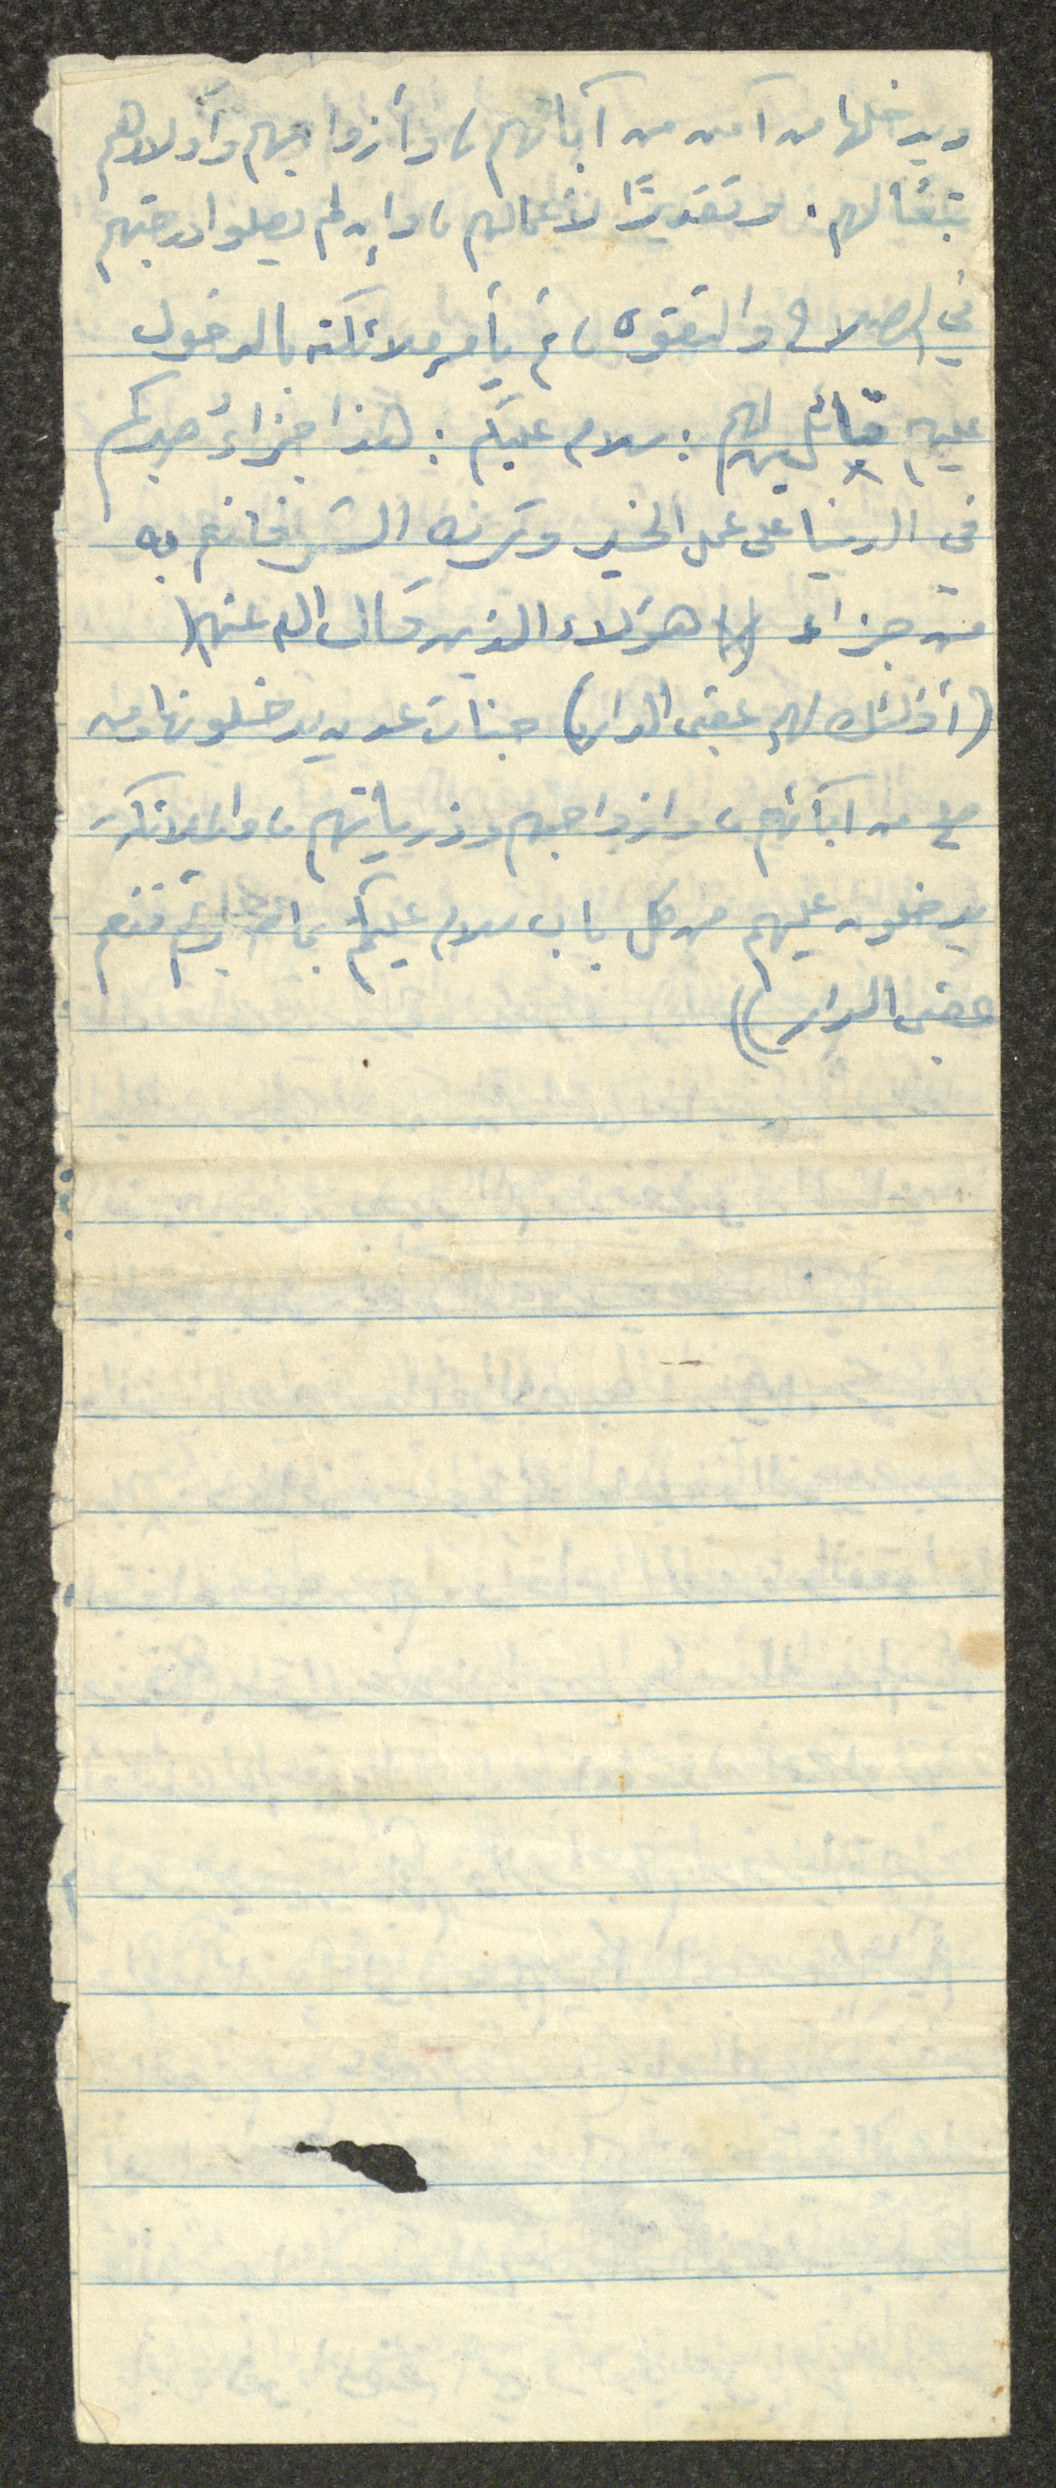 ويدخلها من آمن من آبائهم، وأزواجهم وأولادهم
تبعًا لهم. وتقديرًا لأعمالهم، وإن لم يصلوا درجتهم
في الصلاح والتقوى، ثم يأمر ملائكته بالدخول
عليهم قائلين لهم: سلام عليكم: هذا جزاءُ صبركم
في الدنيا على عمل الخير وترك الشر فانعم به
من جزاء هؤلاء الذين قال الله عنهم
(أولئك لهم عقبى الدار) جنات عدن يدخلونها ومن
صلح من آبائهم، وازواجهم وذرياتهم، والملائكة
يدخلون عليهم من كل باب سلام عليكم بما صبرتم فنعم
عقبى الدار))